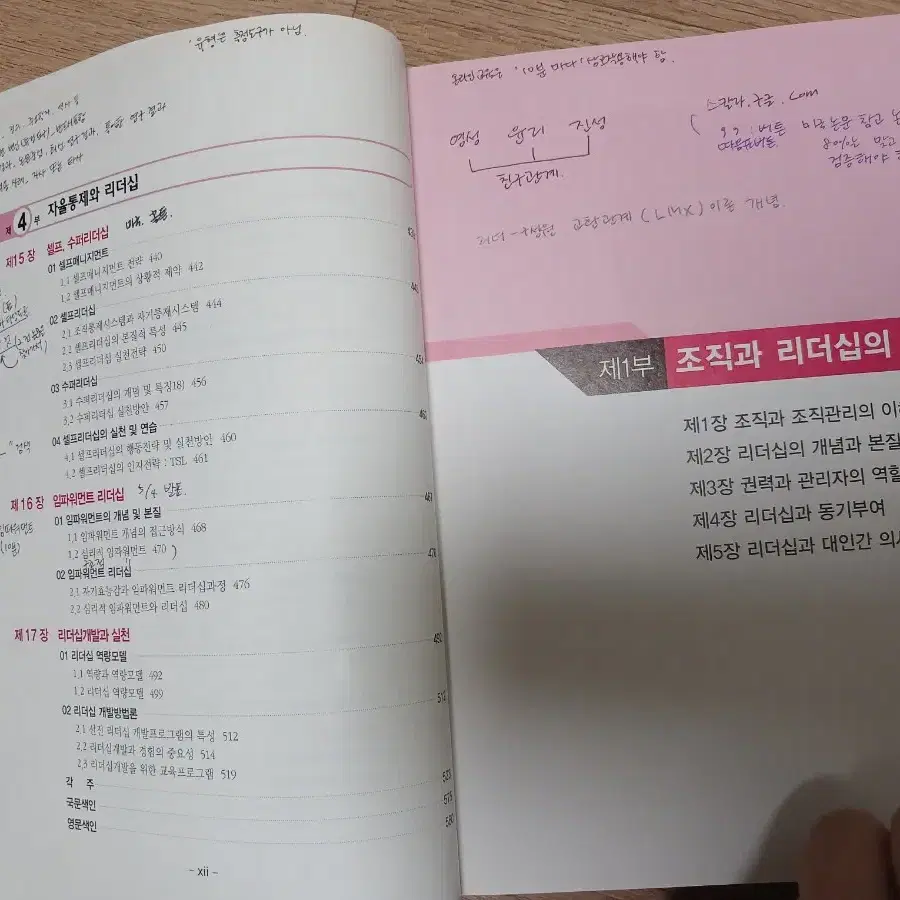 유형은 측정도구가 아님.
제 4 부 자율통제와 리더십
제15장 셀프, 수퍼리더십
01 셀프매니지먼트
1.1 셀프매니지먼트 전략 440
1.2 셀프매니지먼트의 상황적 제약 442
02 셀프리더십
2.1 조직통제시스템과 자기통제시스템 444
2.2 셀프리더십의 본질적 특성 445
2.3 셀프리더십 실천전략 450
03 수퍼리더십
3.1 수퍼리더십의 개념 및 특징18) 456
3.2 수퍼리더십 실천방안 457
04 셀프리더십의 실천 및 연습
4.1 셀프리더십의 행동전략 및 실천방안 460
4.2 셀프리더십의 인지전략 : TSL 461
검색
제16장 임파워먼트 리더십 5/4 발표
임파워먼트
01 임파워먼트의 개념 및 본질
1.1 임파워먼트 개념의 접근방식 468
1.2 심리적 임파워먼트 470
02 임파워먼트 리더십
2.1 자기효능감과 임파워먼트 리더십과정 476
2.2 심리적 임파워먼트와 리더십 480
제17장 리더십개발과 실천
01 리더십 역량모델
1.1 역량과 역량모델 492
1.2 리더십 역량모델 499
02 리더십 개발방법론
2.1 선진 리더십 개발프로그램의 특성 512
2.2 리더십개발과 경험의 중요성 514
2.3 리더십개발을 위한 교육프로그램 519
각 주
국문색인 575
영문색인 580
- xii -
온라인 교육은 '10분 마다' 상호작용해야 함.
스칼라.구글.com
영성 윤리 진성
따옴표버튼
미국논문 참고
검증해야
친구관계
리더-구성원 교환관계(LMX)이론 개념.
제1부 조직과 리더십의
제1장 조직과 조직관리의
제2장 리더십의 개념과 본질
제3장 권력과 관리자의 역할
제4장 리더십과 동기부여
제5장 리더십과 대인간